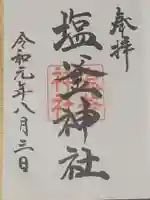 奉拝
塩釜神社
令和元年八月三日